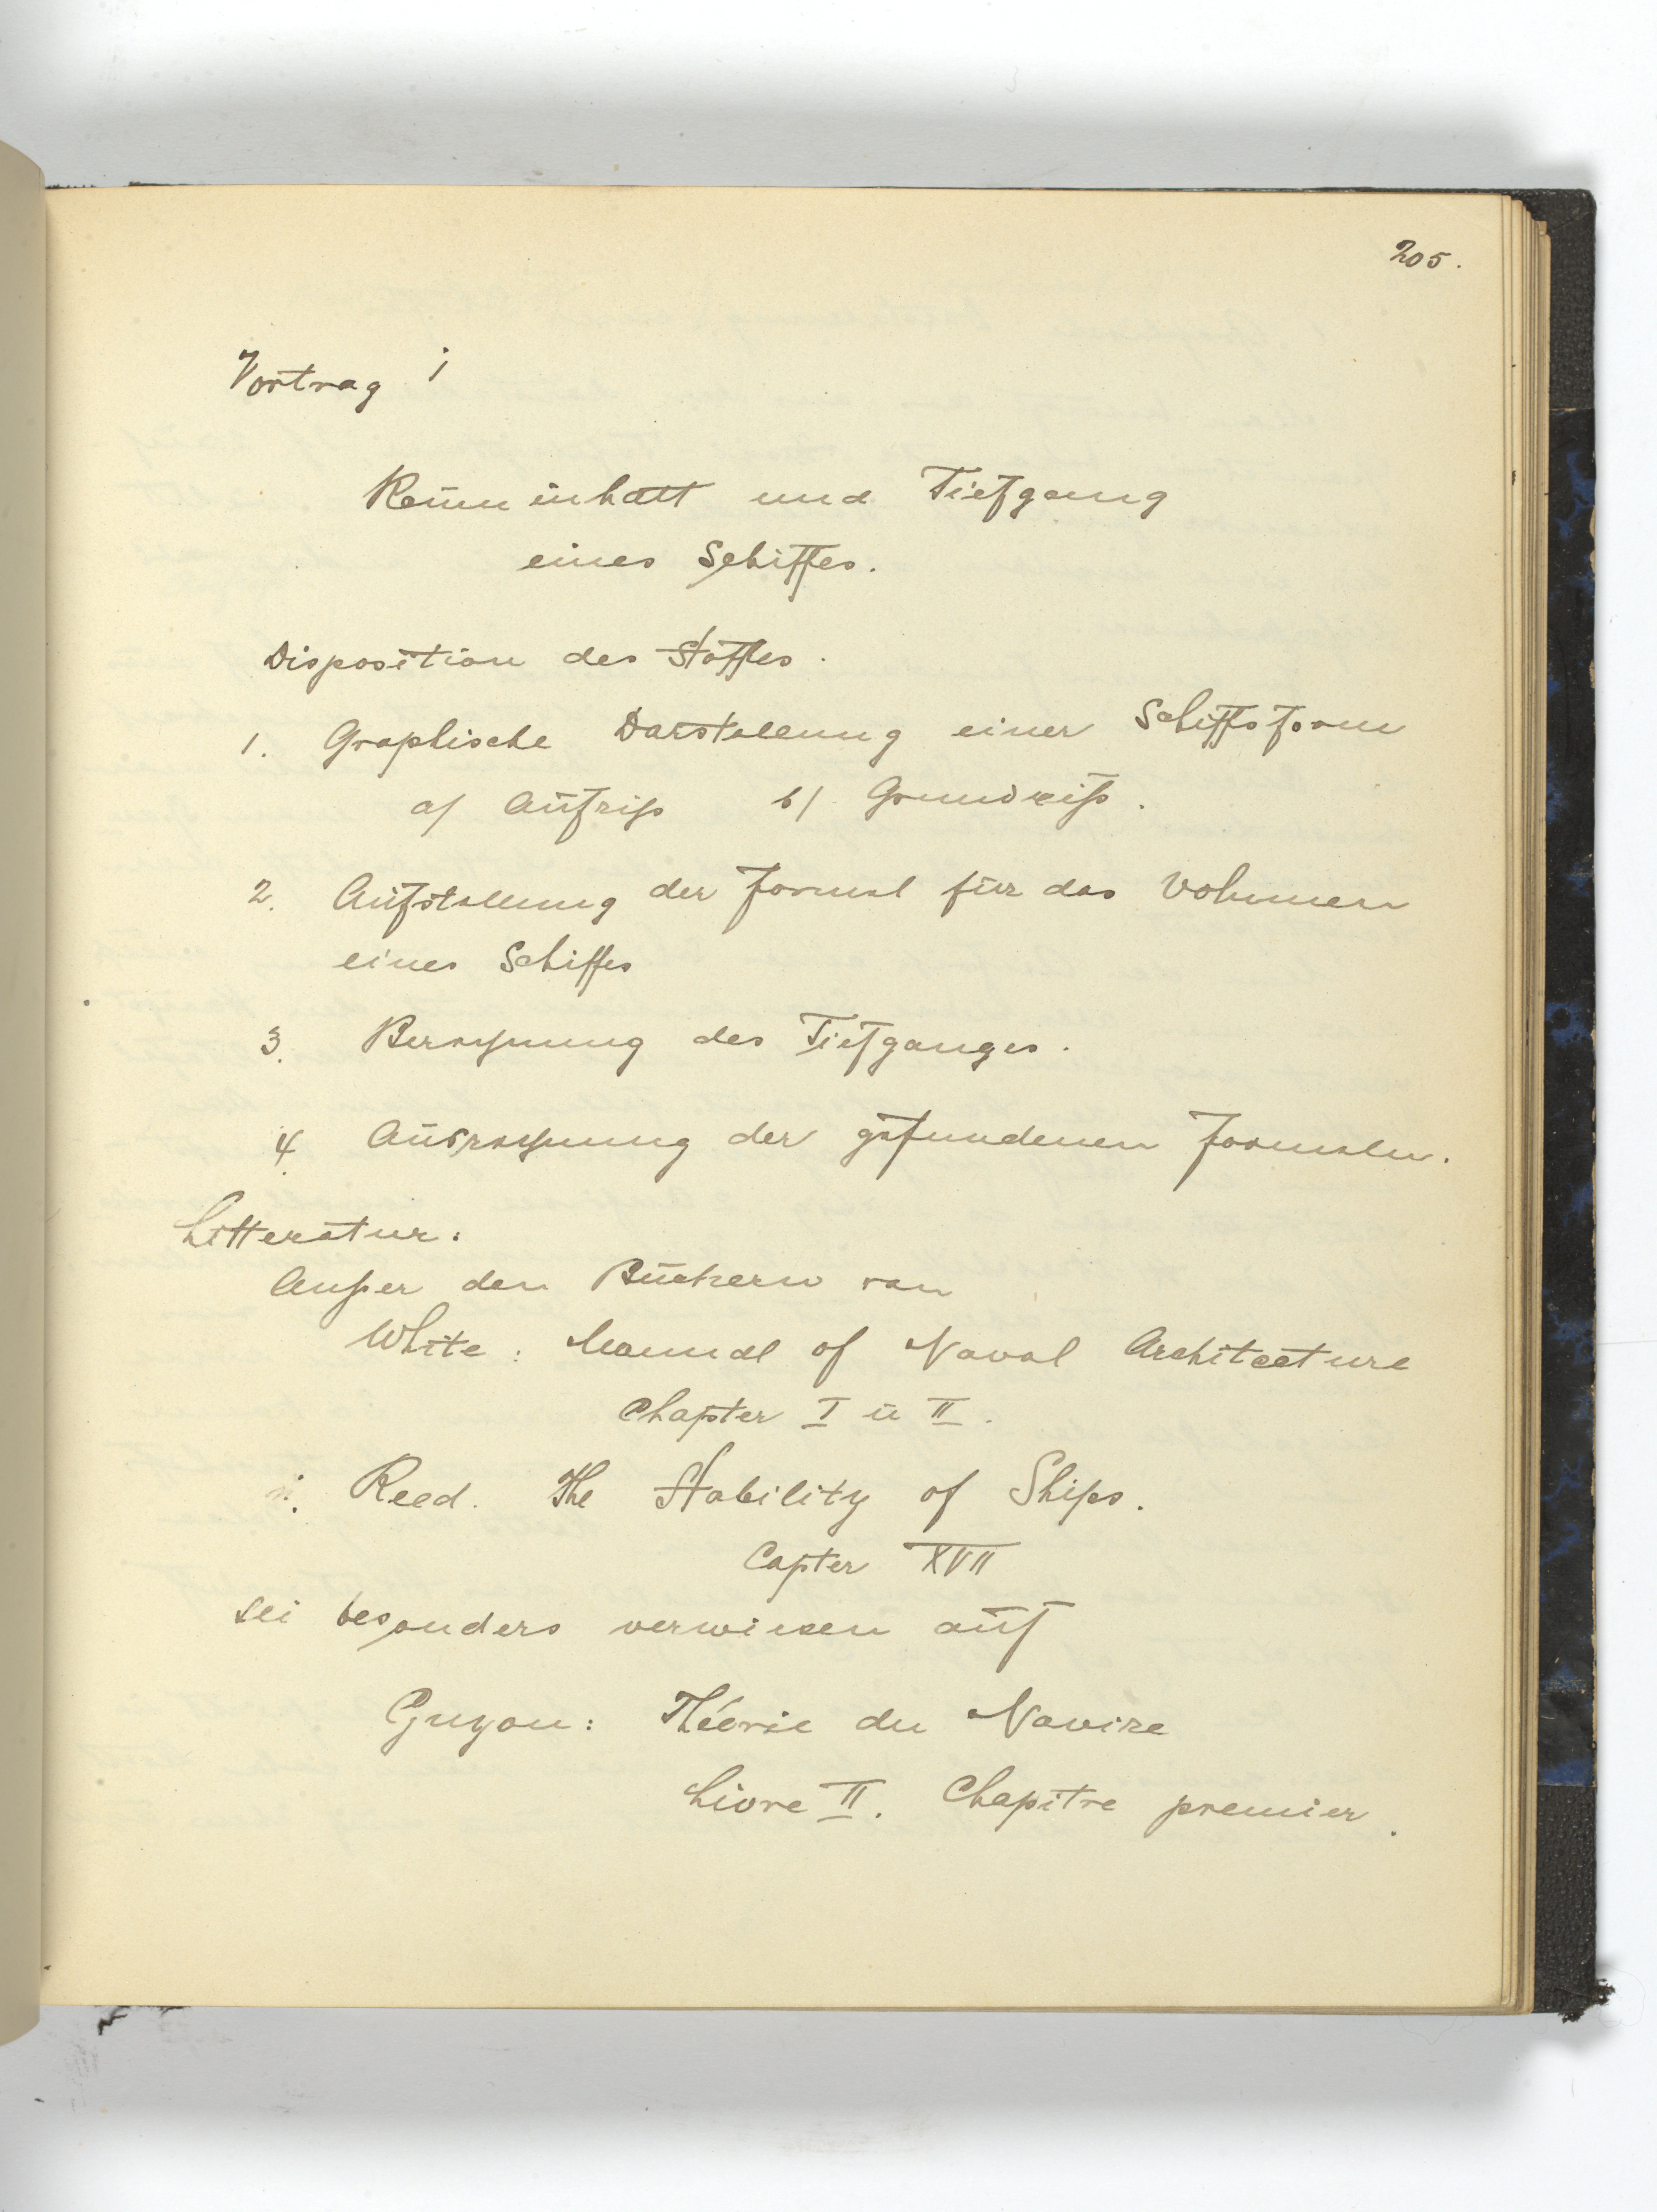 205.
Vortrag 1
Rauminhalt und Tiefgang
eines Schiffes.
Disposition des Stoffes.
1. Graphische Darstellung einer Schiffsform
a/ Aufriß b/ Grundriß.
2. Aufstellung der Formel für das Volumen
eines Schiffes
3. Berechnung des Tiefganges.
4. Ausrechnung der gefundenen Formeln.
Litteratur:
Außer den Büchern von
White: Manual of Naval Architecture
Chapter I u II.
Reed. The Stability of Ships.
Capter XVII
sei besonders verwiesen auf
Guyou: Théorie du Navire
Livre II. Chapitre premier.